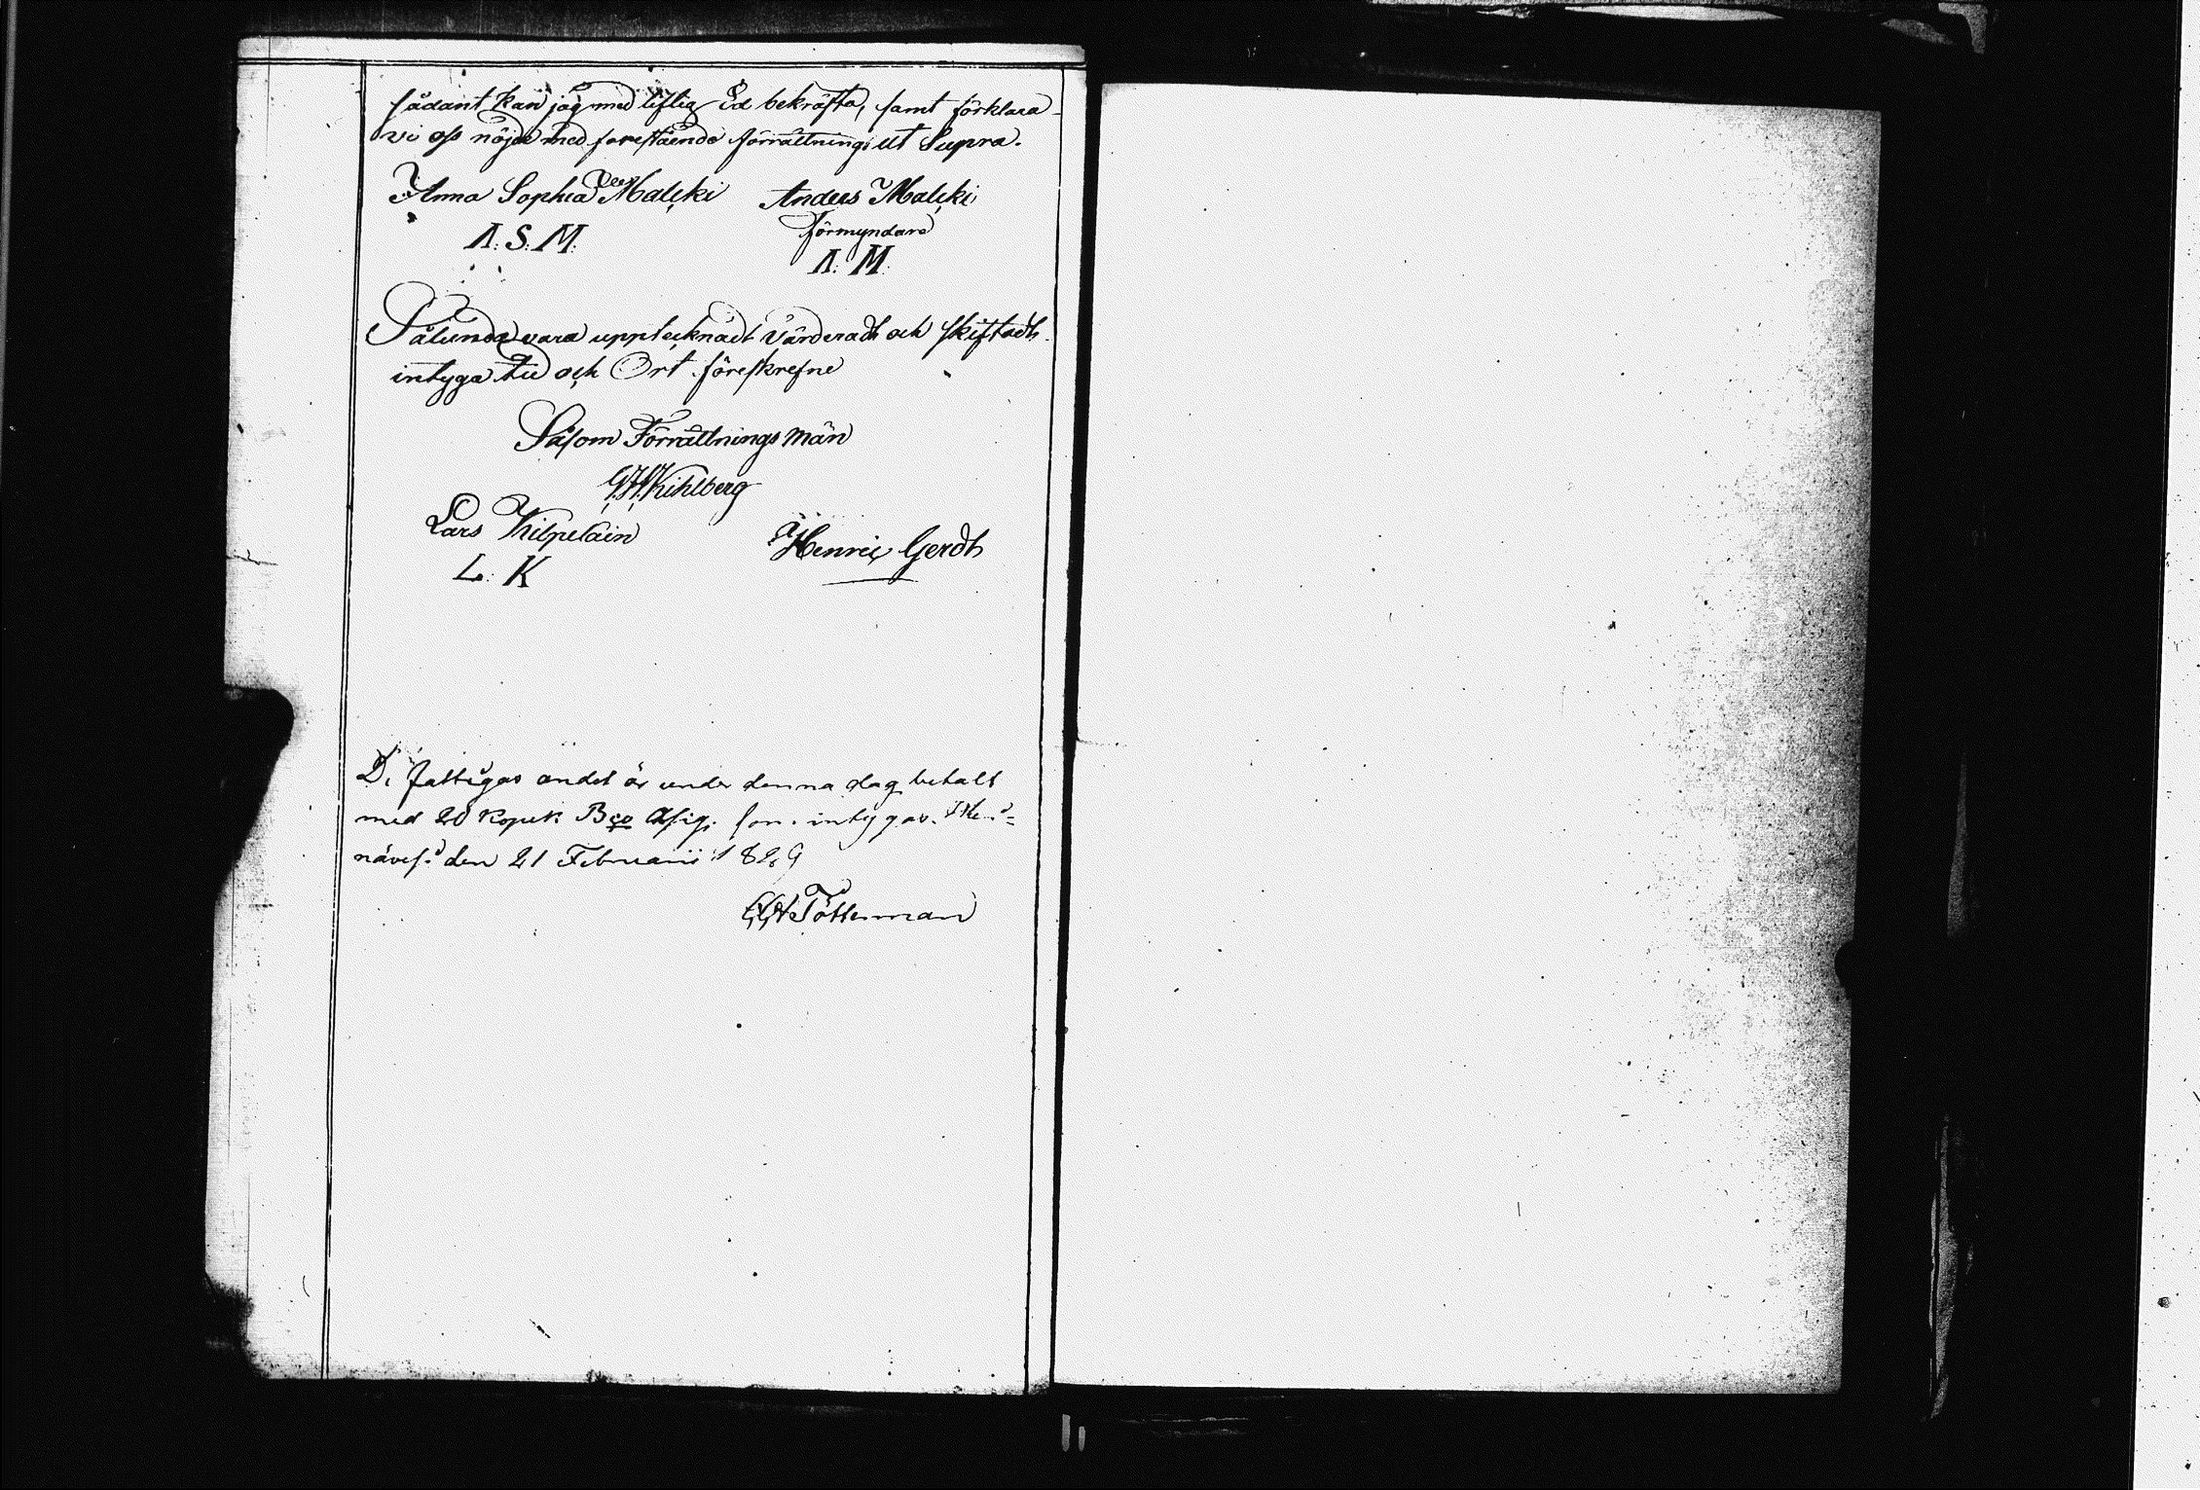 sådant kan jag med liflig Ed bekräfta, samt förklara
vi oss nöjde med förestående förrättning; ut Supra.
Anna Sophia Malcki Anders Malcki
förmyndare
A: S: M: A: M:
Sålunda vara upptecknadt värderadt och skiftadt
intyga tid och Ort föreskrefne
Såsom Förrättnings män
G: H: Kihlberg
Lars Kilpelain Henric Gerdt
L: K
De fattigas andel är under denna dag betalt
med 20 Kopek Bco Assig: som intygas.
den 21 Februarii 1829
Tötterman